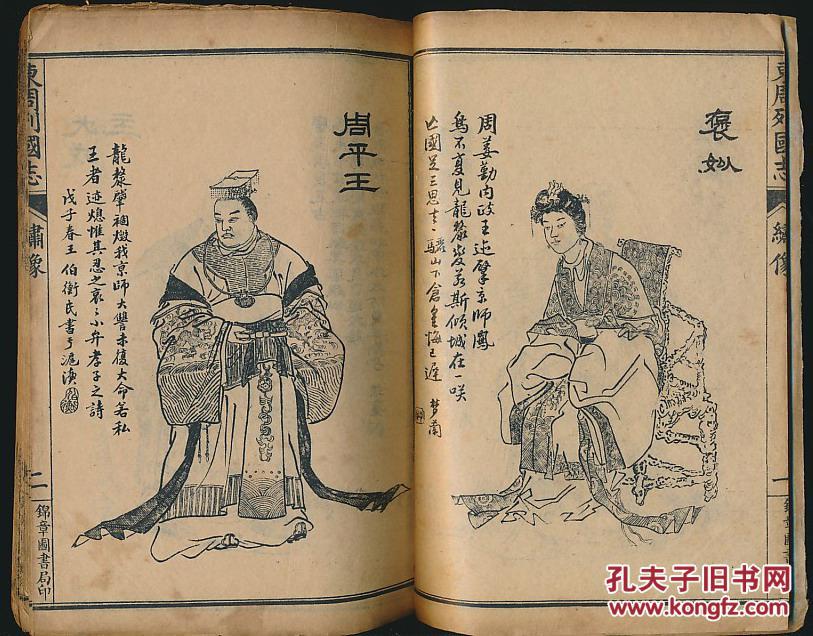 東周列國志
繡像
一
錦章圖書
褒姒
周姜勤內政王迹肇京師鳳
鳥不復見龍漦발若斯傾城在一咲
亡國足三思去驪山下倉皇悔已遲 夢蘭
周平王
龍漦肇禍燬我京師大讐未復大命若私
王者迹熄惟其忍之哀哀小弁孝子之詩
戊子春王伯衡氏書于滬濱
東周列國志
繡像
二
錦章圖書局印
孔夫子旧书网
www.kongfz.com